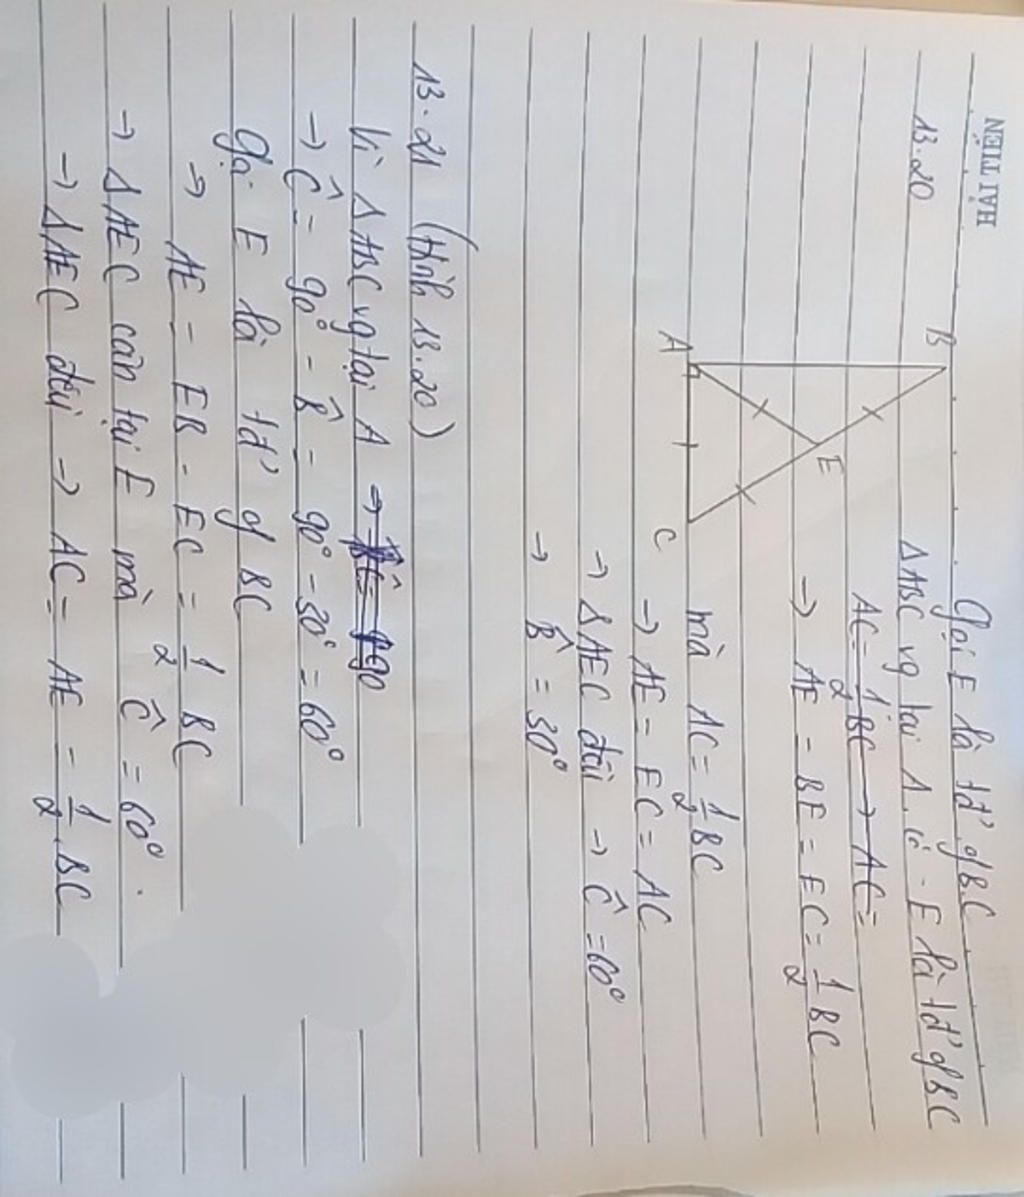 HẢI TIẾN
13.20
Gọi E là tđ' of BC
ΔABC vg tại A có - E là tđ' of BC
AC = 1/2 BC → AC =
→ AE = BE = EC = 1/2 BC
mà AC = 1/2 BC
→ AE = EC = AC
→ ΔAEC đều → Ĉ = 60°
→ B̂ = 30°
B
E
A
C
13.21 (Hình 13.20)
Vì ΔABC vg tại A →
→ Ĉ = 90° - B̂ = 90° - 30° = 60°
Gọi E là tđ' of BC
→ AE = EB = EC = 1/2 BC
→ ΔAEC cân tại E mà Ĉ = 60°.
→ ΔAEC đều → AC = AE = 1/2 BC